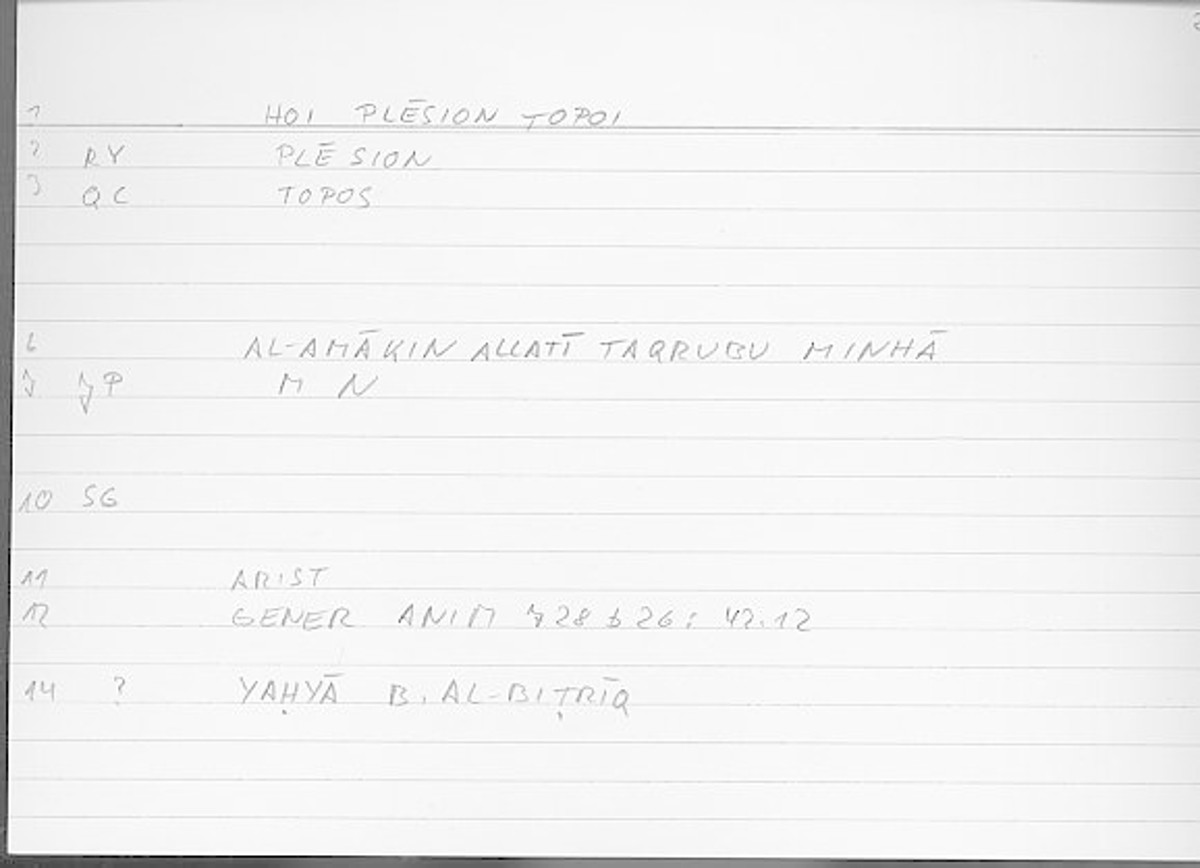 1 HOI PLĒSION TOPOI
2 RY PLĒSION
3 QC TOPOS
6 AL-AMĀKIN ALLATĪ TAQRUBU MINHĀ
7 JP M N
10 SG
11 ARIST
12 GENER ANIM 728 b 26 : 42.12
14 ? YAḤYĀ B. AL-BIṬRĪQ